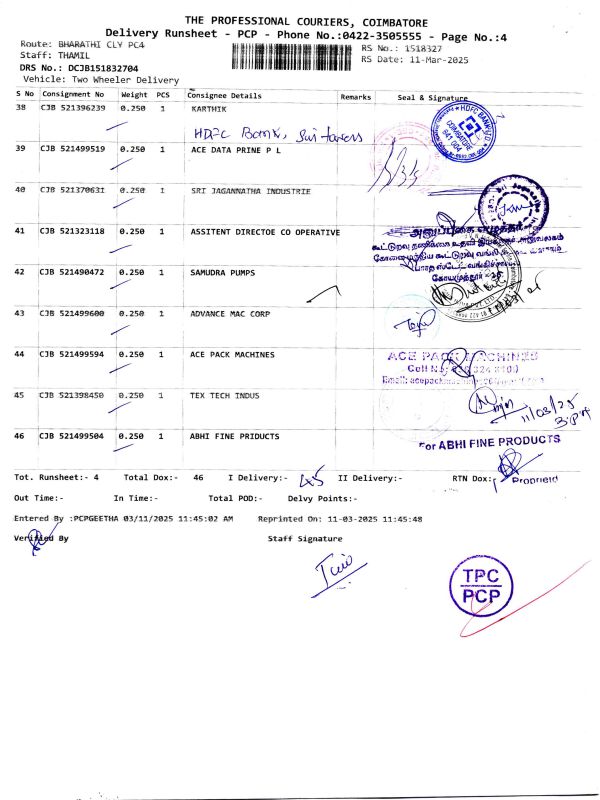 THE PROFESSIONAL COURIERS, COIMBATORE
Delivery Runsheet - PCP - Phone No.:0422-3505555 - Page No.:4
Route: BHARATHI CLY PC4 RS No.: 1518327
Staff: THAMIL RS Date: 11-Mar-2025
DRS No.: DCJB151832704
Vehicle: Two Wheeler Delivery
S No Consignment No Weight PCS Consignee Details Remarks Seal & Signature
38 CJB 521396239 0.250 1 KARTHIK
HDFC Bank,
HDFC BANK LTD COIMBATORE 641 004
39 CJB 521499519 0.250 1 ACE DATA PRINE P L
40 CJB 521370631 0.250 1 SRI JAGANNATHA INDUSTRIE
41 CJB 521323118 0.250 1 ASSITENT DIRECTOE CO OPERATIVE
42 CJB 521490472 0.250 1 SAMUDRA PUMPS
43 CJB 521499600 0.250 1 ADVANCE MAC CORP
44 CJB 521499594 0.250 1 ACE PACK MACHINES
ACE PACK MACHINES
45 CJB 521398450 0.250 1 TEX TECH INDUS
11/03/25
46 CJB 521499504 0.250 1 ABHI FINE PRIDUCTS
For ABHI FINE PRODUCTS
Tot. Runsheet:- 4 Total Dox:- 46 I Delivery:- 45 II Delivery:- RTN Dox:-
Out Time:- In Time:- Total POD:- Delvy Points:-
Entered By :PCPGEETHA 03/11/2025 11:45:02 AM Reprinted On: 11-03-2025 11:45:48
Verified By Staff Signature
TPC
PCP